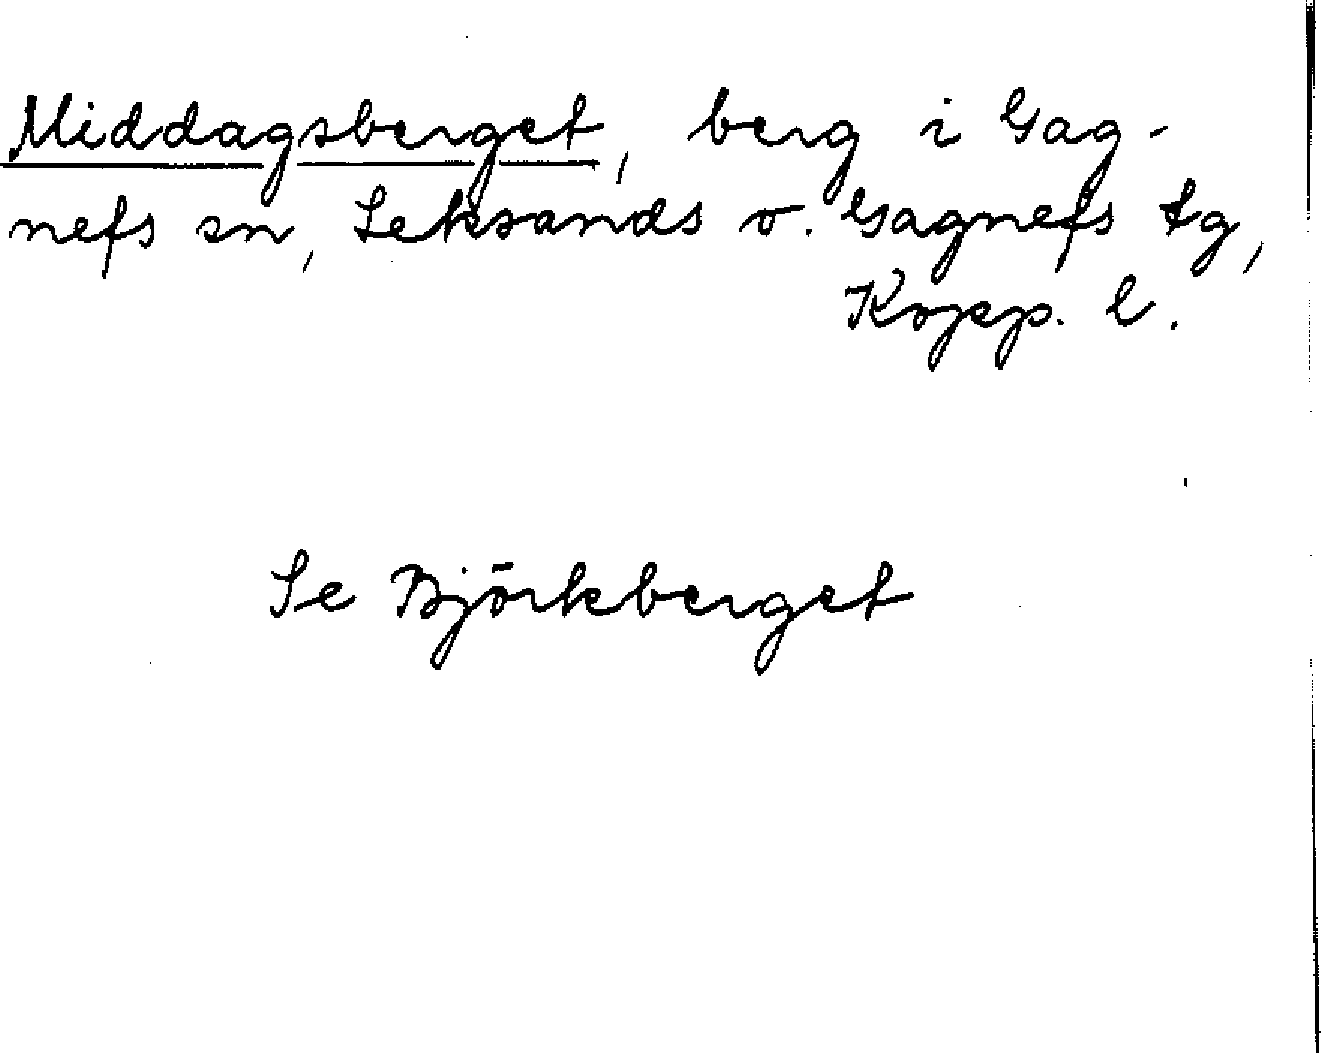 Middagsberget, berg i Gag-
nefs sn, Leksands o. Gagnefs tg,
Kopp. l.
Se Björkberget